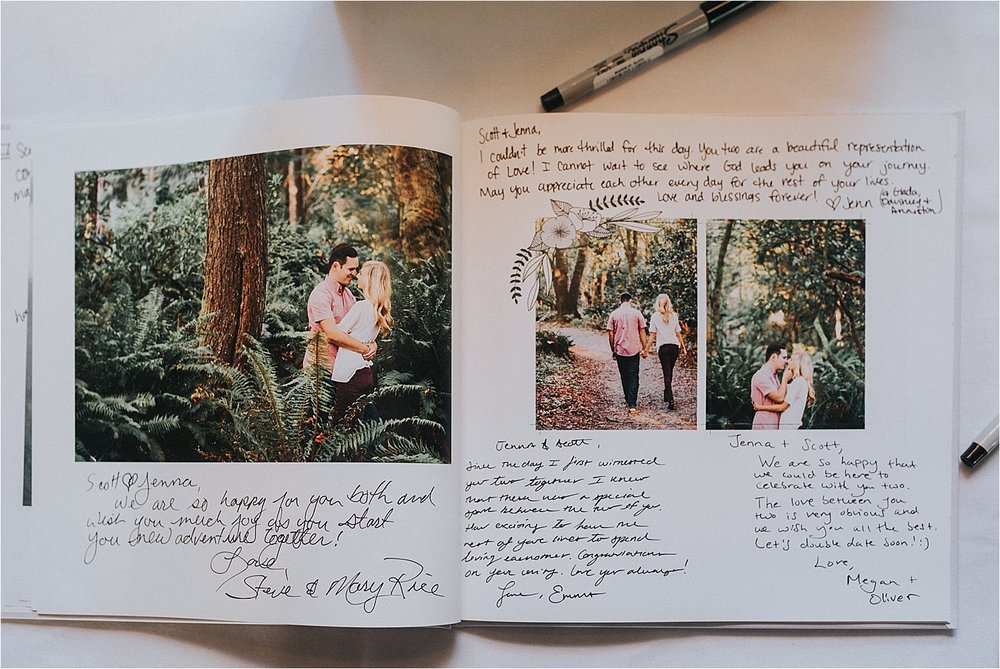 Scott ♡ Jenna,
We are so happy for you both and
wish you much joy as you start
you new adventure together!
Love,
Steve & Mary Rice
Scott + Jenna,
I couldn't be more thrilled for this day. You two are a beautiful representation
of Love! I cannot wait to see where God leads you on your journey.
May you appreciate each other every day for the rest of your lives
Love and blessings forever! ♡ Jenn
Jenna & Scott,
Since the day I first witnessed
you two together I knew
that there was a special
spark between the two of you.
How exciting to have the
rest of your lives to spend
loving eachother. Congratulations
on your wedding. Love you always!
Love, Emma
Jenna + Scott,
We are so happy that
we could be here to
celebrate with you two.
The love between you
two is very obvious and
we wish you all the best.
(Let's double date soon! :)
Love,
Megan +
Oliver
Sharpie